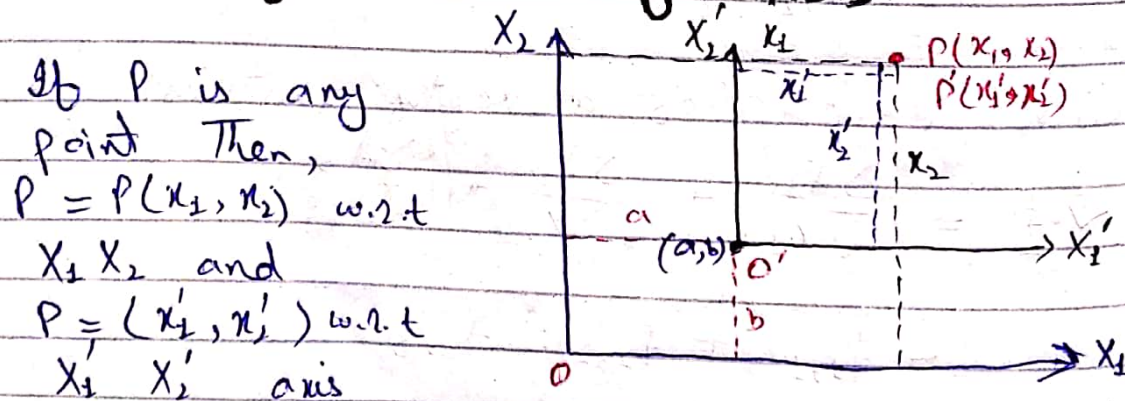 If P is any
point Then,
P = P(x₁, x₂) w.r.t
X₁ X₂ and
P = (x₁', x₂') w.r.t
X₁' X₂' axis
X₂
X₂'
x₁
P(x₁, x₂)
x₁'
P'(x₁', x₂')
x₂'
x₂
a
(a,b)
O'
X₁'
b
O
X₁